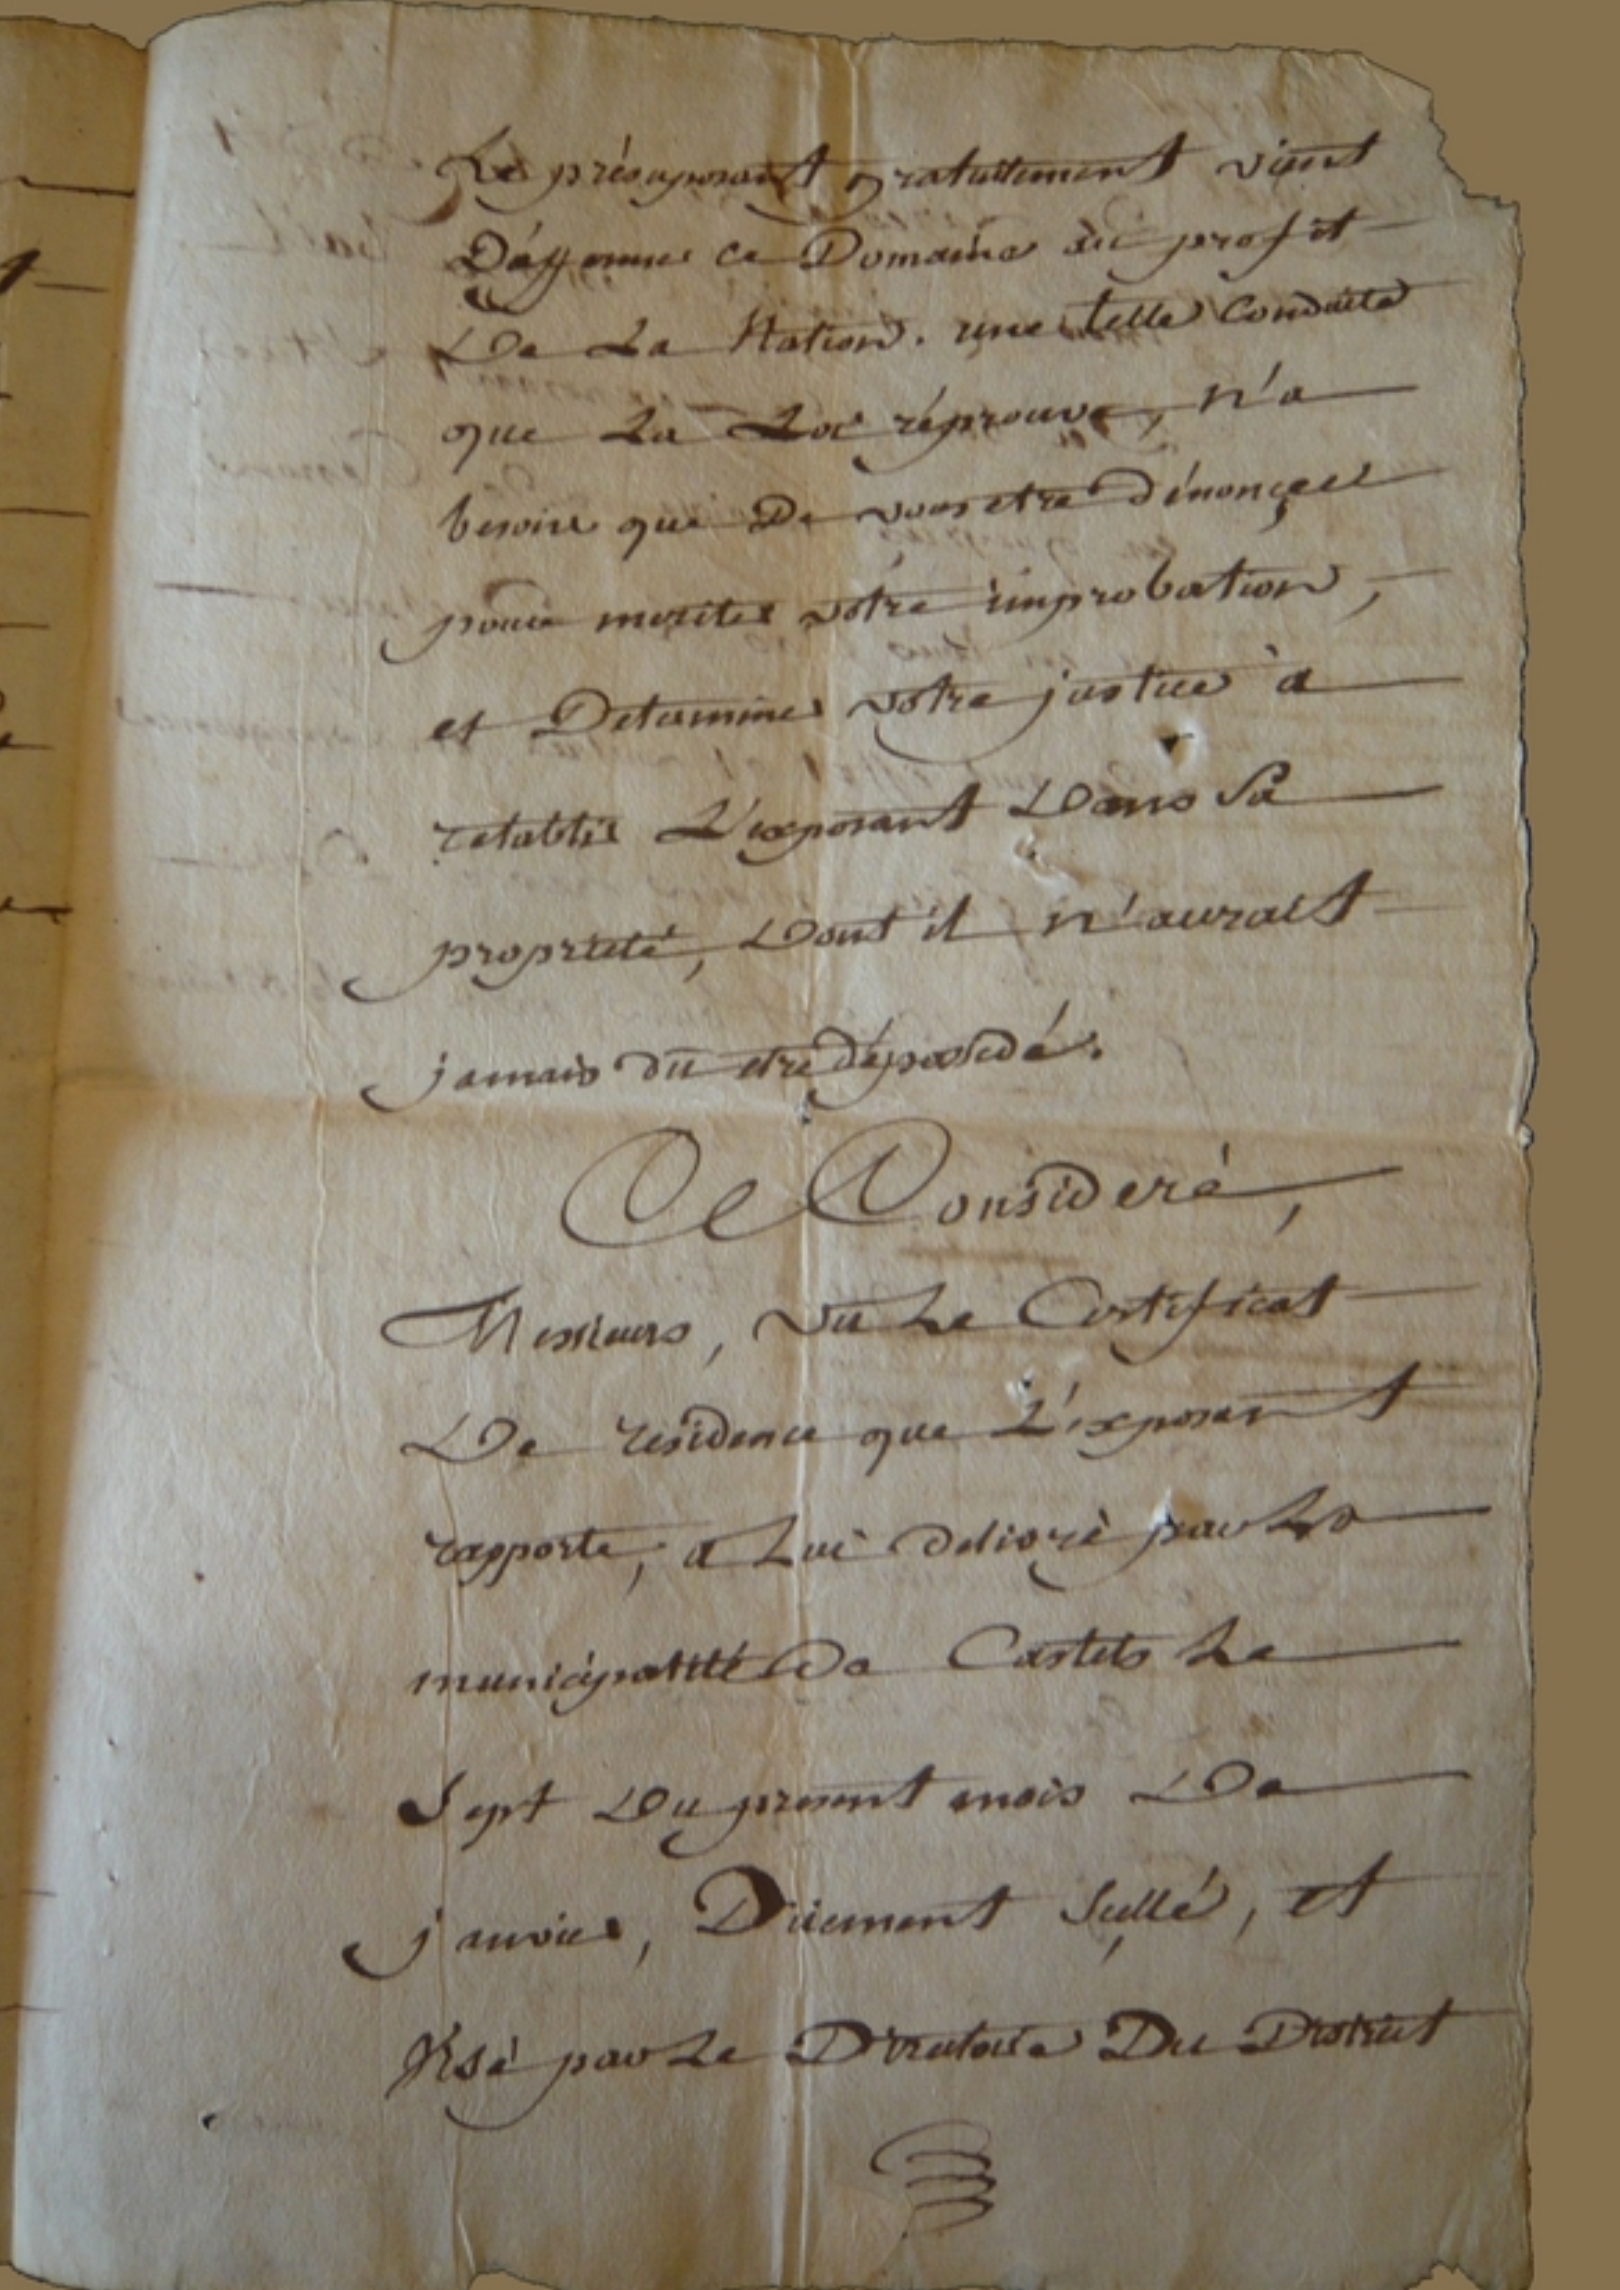 Le présuposant gratuitement vient
D'affermer ce Domaine au profit
De La Nation. une telle Conduite
que La Loi réprouve, n'a
besoin que De vous etre dénonçée
pour meriter votre improbation,
et Determiner votre justice à
retablir L'exposant Dans Sa
proprieté, Dont il n'aurait
jamais dû etre dépossedé.
Ce Consideré,
Messieurs, vu Le Certificat
De residence que L'exposant
rapporte, a Lui delivré par La
municipalité De Castets Le
Sept Du present mois De
janvier, Duement Sçellé, et
Visé par Le Directoire Du District